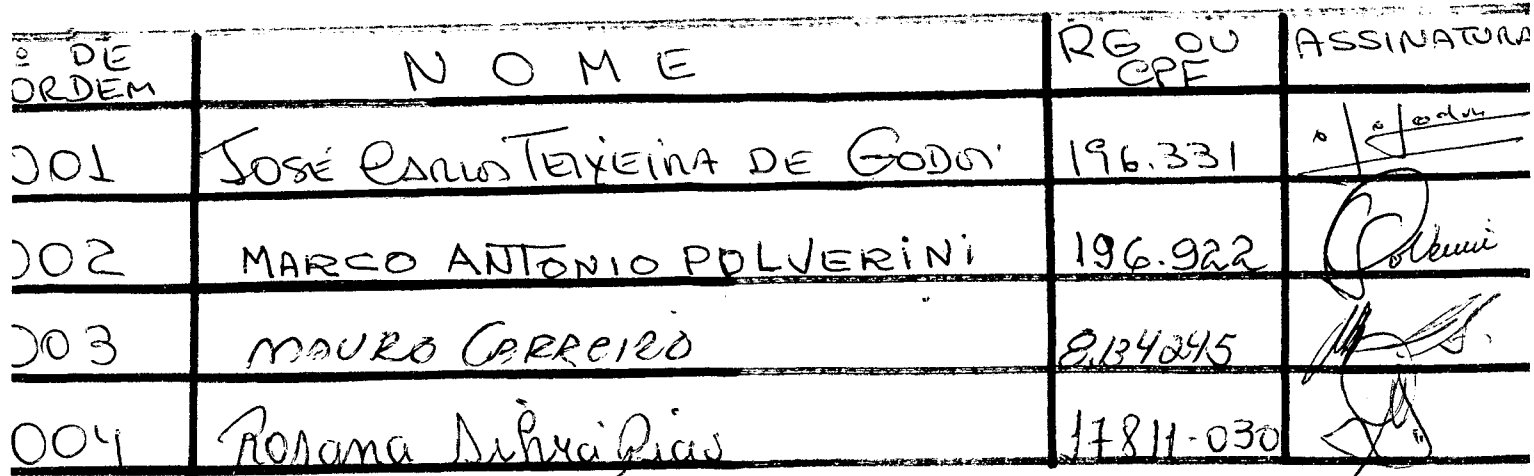 º DE ORDEM NOME RG OU CPF ASSINATURA
001 JOSÉ CARLOS TEIXEIRA DE GODOI 196.331
002 MARCO ANTONIO POLVERINI 196.922 Polverini
003 MAURO CARREIRO 8.134245
004 Rosana Dias 17811-030